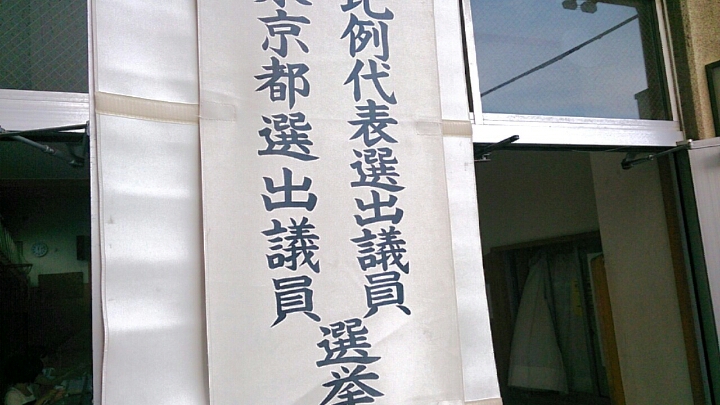 比例代表選出議員
東京都選出議員
選挙